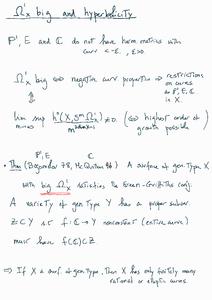 Ω¹x big and hyperbolicity
P¹, E and C do not have herm metrics with
curv < -ε, ε>0.
Ω¹x big ⇔ negative curv properties ⇒ restrictions
on curves
as P¹, E, C
in X.
lim sup h⁰(X, SᵐΩ¹x) ≠ 0. (⇔ highest order of
m→∞ growth possible)
P¹, E C
• Thm (Bogomolov 78, McQuillan 98) A surface of gen type X
with big Ω¹x satisfies the Green-Griffiths conj:
A variety of gen type Y has a proper subvar.
Z⊂Y s.t f: C→Y nonconstant (entire curve)
must have f(C)⊂Z.
⇒ If X a surf of gen type, then X has only finitely many
rational or elliptic curves